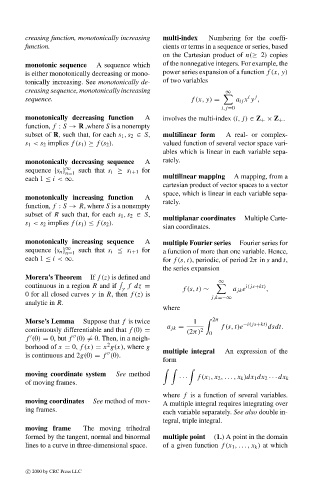 creasing function, monotonically increasing
function.
monotonic sequence A sequence which
is either monotonically decreasing or mono-
tonically increasing. See monotonically de-
creasing sequence, monotonically increasing
sequence.
monotonically decreasing function A
function, f : S → R ,where S is a nonempty
subset of R, such that, for each s₁, s₂ ∈ S,
s₁ < s₂ implies f(s₁) ≥ f(s₂).
monotonically decreasing sequence A
sequence {sₙ}∞ₙ₌₁ such that sᵢ ≥ sᵢ₊₁ for
each 1 ≤ i < ∞.
monotonically increasing function A
function, f : S → R, where S is a nonempty
subset of R such that, for each s₁, s₂ ∈ S,
s₁ < s₂ implies f(s₁) ≤ f(s₂).
monotonically increasing sequence A
sequence {sₙ}∞ₙ₌₁ such that sᵢ ≤ sᵢ₊₁ for
each 1 ≤ i < ∞.
Morera's Theorem If f(z) is defined and
continuous in a region R and if ∫γ f dz =
0 for all closed curves γ in R, then f(z) is
analytic in R.
Morse's Lemma Suppose that f is twice
continuously differentiable and that f(0) =
f′(0) = 0, but f″(0) ≠ 0. Then, in a neigh-
borhood of x = 0, f(x) = x²g(x), where g
is continuous and 2g(0) = f″(0).
moving coordinate system See method
of moving frames.
moving coordinates See method of mov-
ing frames.
moving frame The moving trihedral
formed by the tangent, normal and binormal
lines to a curve in three-dimensional space.
multi-index Numbering for the coeffi-
cients or terms in a sequence or series, based
on the Cartesian product of n(≥ 2) copies
of the nonnegative integers. For example, the
power series expansion of a function f(x, y)
of two variables
f(x, y) = ∑∞i,j=0 aᵢⱼxⁱyʲ,
involves the multi-index (i, j) ∈ Z₊ × Z₊.
multilinear form A real- or complex-
valued function of several vector space vari-
ables which is linear in each variable sepa-
rately.
multilinear mapping A mapping, from a
cartesian product of vector spaces to a vector
space, which is linear in each variable sepa-
rately.
multiplanar coordinates Multiple Carte-
sian coordinates.
multiple Fourier series Fourier series for
a function of more than one variable. Hence,
for f(s, t), periodic, of period 2π in s and t,
the series expansion
f(s, t) ~ ∑∞j,k=−∞ aⱼₖe^i(js+kt),
where
aⱼₖ = 1/(2π)² ∫₀^2π f(s, t)e^−i(js+kt)dsdt.
multiple integral An expression of the
form
∫ ∫ ··· ∫ f(x₁, x₂, ..., xₖ)dx₁dx₂ ··· dxₖ
where f is a function of several variables.
A multiple integral requires integrating over
each variable separately. See also double in-
tegral, triple integral.
multiple point (1.) A point in the domain
of a given function f(x₁, ..., xₖ) at which
© 2000 by CRC Press LLC